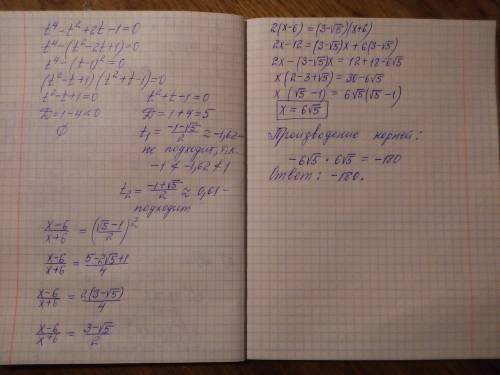 t⁴-t²+2t-1=0
t⁴-(t²-2t+1)=0
t⁴-(t-1)²=0
(t²-t+1)(t²+t-1)=0
t²-t+1=0 t²+t-1=0
D=1-4<0 D=1+4=5
∅ t₁=(-1-√5)/2≈-1,62-
не подходит, т.к.
-1≮-1,62≮1
t₂=(-1+√5)/2≈0,61-
подходит
(x-6)/(x+6)=((√5-1)/2)²
(x-6)/(x+6)=(5-2√5+1)/4
(x-6)/(x+6)=2(3-√5)/4
(x-6)/(x+6)=(3-√5)/2
2(x-6)=(3-√5)(x+6)
2x-12=(3-√5)x+6(3-√5)
2x-(3-√5)x=12+12-6√5
x(2-3+√5)=30-6√5
x(√5-1)=6√5(√5-1)
x=6√5
Произведение корней:
-6√5·6√5=-180
Ответ: -180.